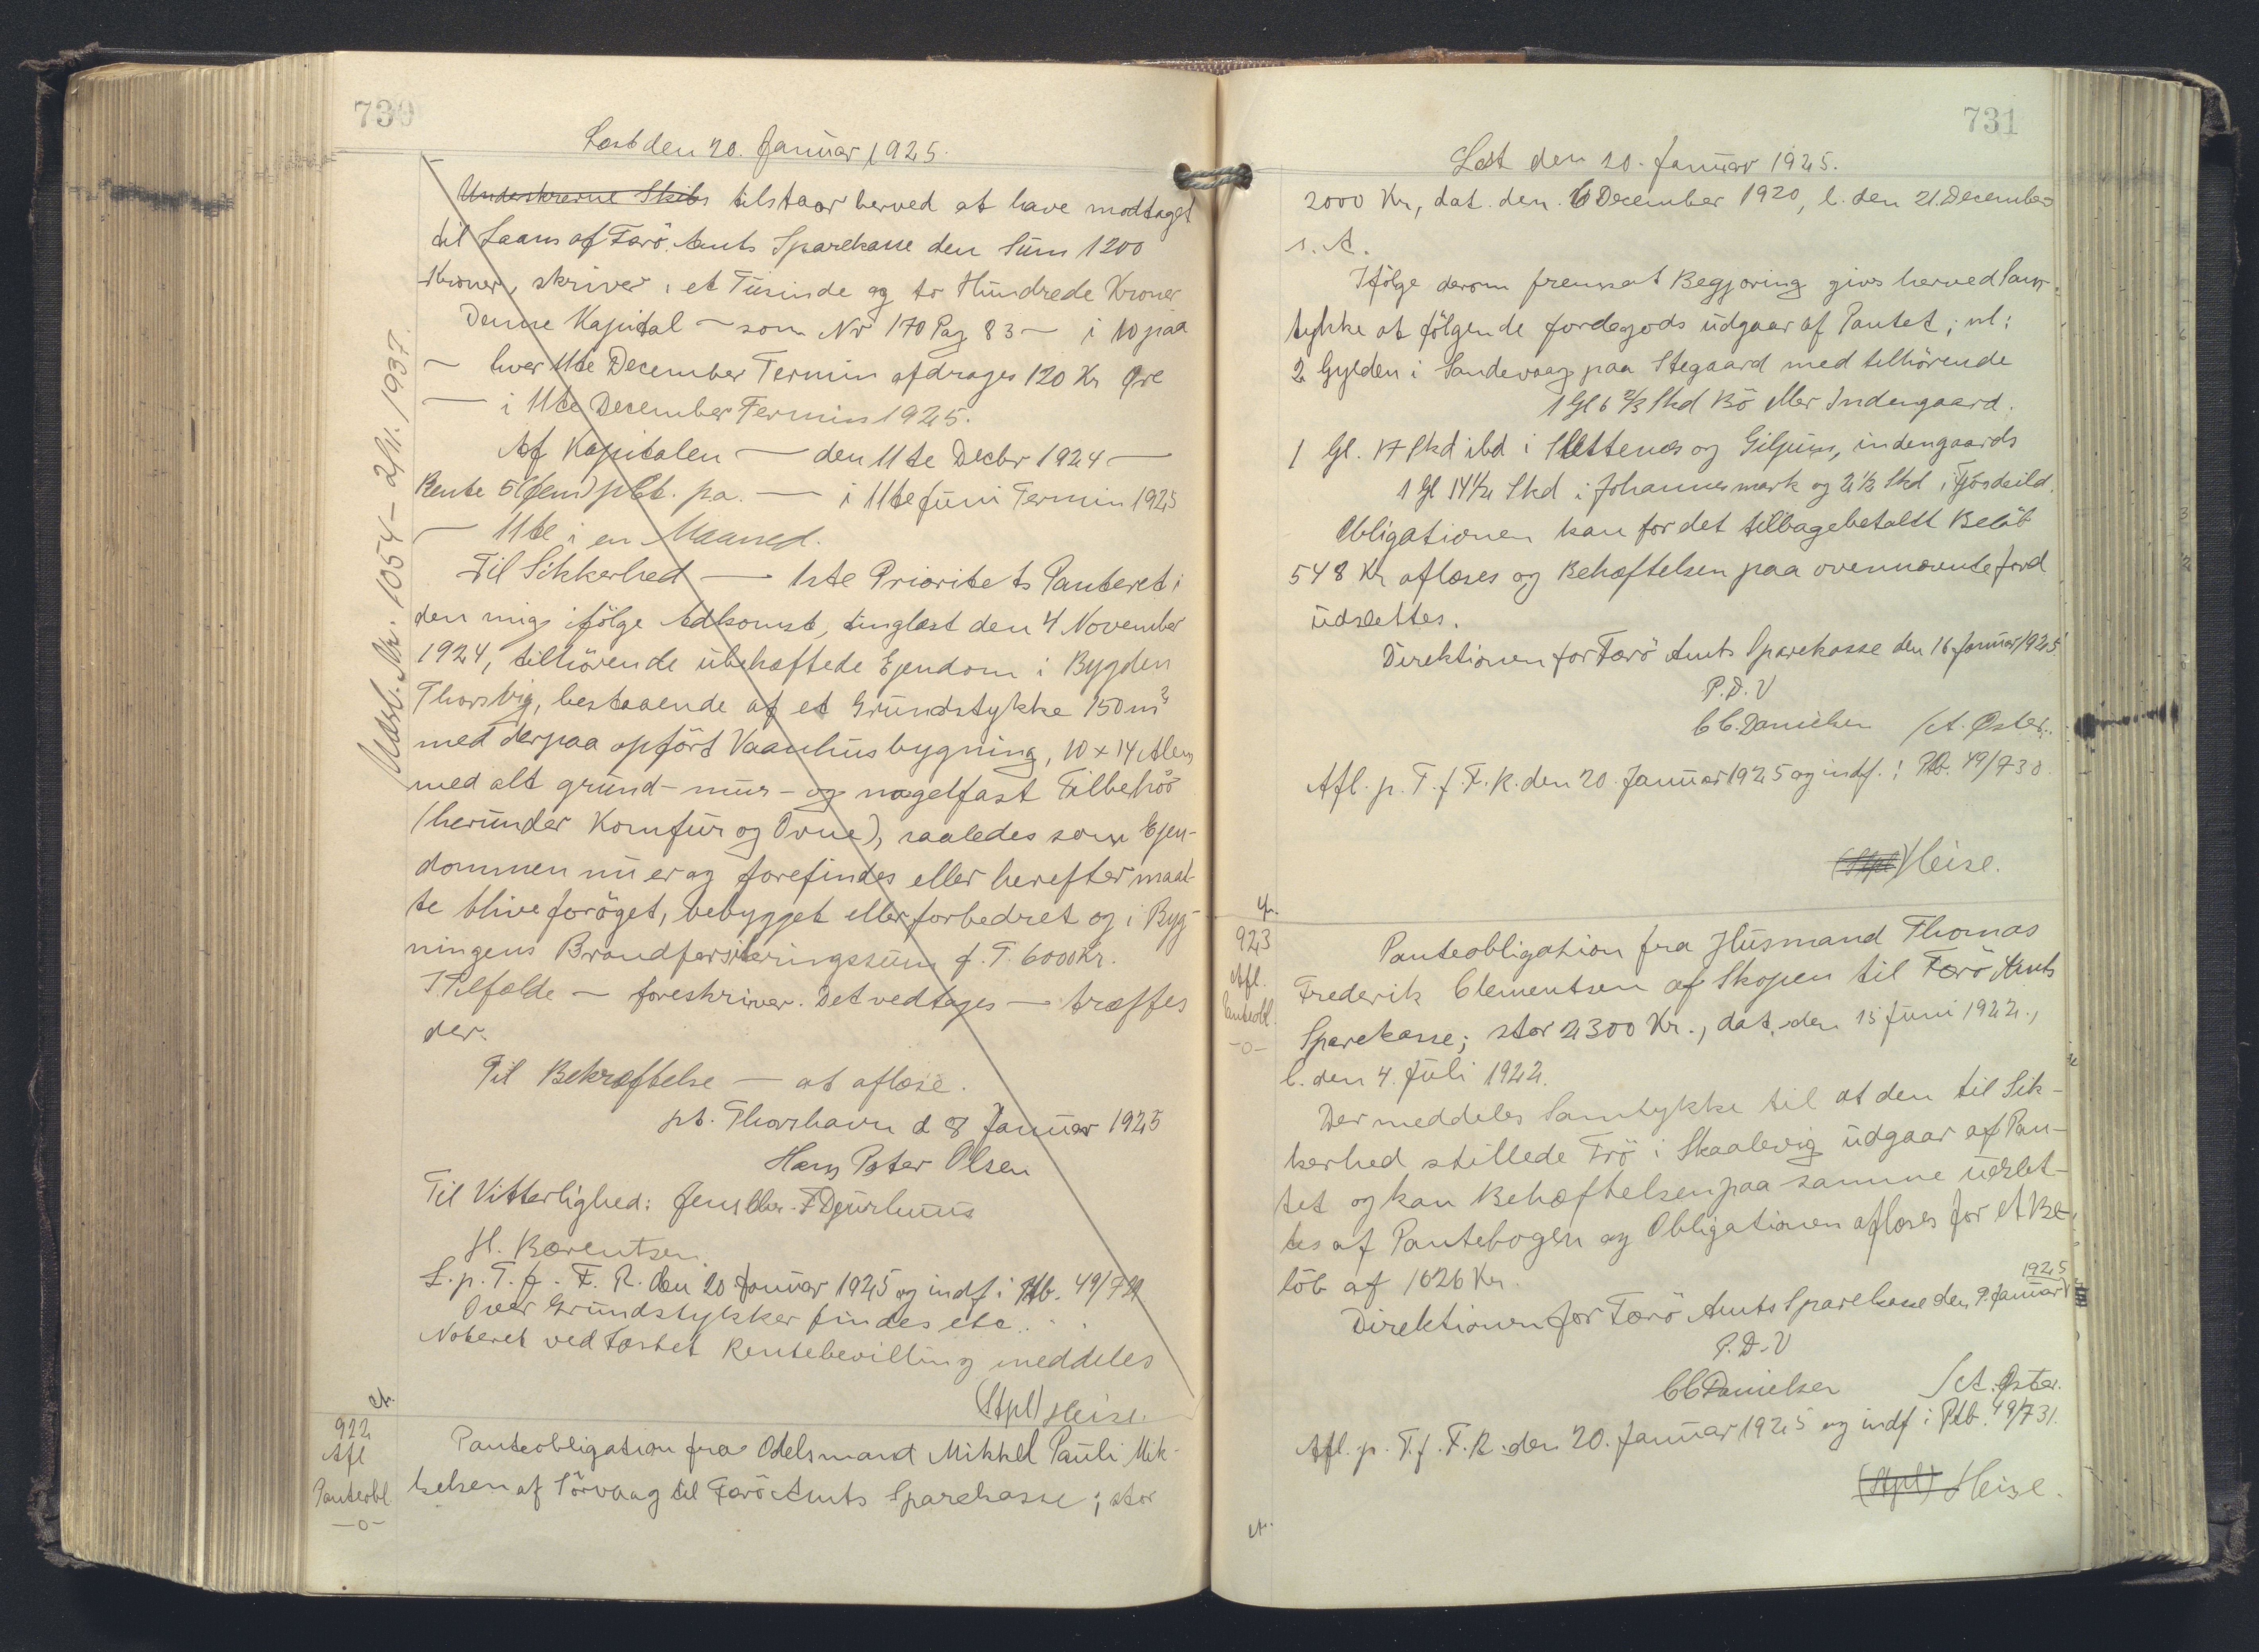 730
Læst den 20. Januar 1925.
Underskrevne Skibs tilstaar herved at have modtaget
til Laans af Færö Amts Sparekasse den Sum 1200
Kroner, skriver, et Tusinde og to Hundrede Kroner
Denne Kapital — som Nr 170 Pag 83 — i 10 paa
— hver 11te December Termin afdrages 120 Kr Øre
— i 11te December Termin 1925.
Af Kapitalen — den 11te Decbr 1924 —
Rente 5 (fem) pCt. pa. — i 11te Juni Termin 1925
— 11te i en Maaned.
Til Sikkerhed — 1ste Prioritets Panteret i
den mig ifölge Adkomst, tinglæst den 4 November
1924, tilhörende übehæftede Ejendom i Bygden
Thorsvig, bestaaende af et Grundstykke 150 m²
med derpaa opfört Vaanhusbygning, 10 x 14 Alen
med alt grund- mur- og nagelfast Tilbehör
(herunder Komfur og Ovne), saaledes som Ejen-
dommen nu er og forefindes eller herefter maat-
te blive foröget, bebygget eller forbedret og i Byg-
ningens Brandforsikringssum f. T. 6000 Kr.
I Tilfælde — foreskriver. Det vedtages — træffes
der.
Til Bekræftelse — at aflæse.
pt. Thorshavn d 8 Januar 1925
Hans Peter Olsen
Til Vitterlighed: Jens Chr. F Djurhuus
H. Bærentsen
L. p. T. f. F. R. den 20 Januar 1925 og indf i Ptb. 49/729
Over Grundstykker findes etc. . .
Noteret ved Fæstet Rentebevilling meddeles
(Stpl) Heise.
Udsl. Nr. 1054 - 2/11. 1937.
A.
922
Afl
Panteobl
—o—
Panteobligation fra Odelsmand Mikkel Pauli Mik-
kelsen af Sörvaag til Færö Amts Sparekasse; stor
731
Læst den 20. Januar 1925.
2000 Kr, dat. den. 6 December 1920, l. den 21. December
s. A.
Ifölge derom fremsat Begjæring givs herved Sam-
tykke at fölgende Jordegods udgaar af Pantet; nl:
2 Gylden i Sandevaag paa Stegaard med tilhörende
1 Gl 6 2/3 Skd Bö eller Indengaard.
1 Gl. 17 Skd ibd i Slettenæs og Giljum, indengaards
1 Gl 14 1/2 Skd i Johannesmark og 2 1/2 Skd i Fjösdeild.
Obligationen kan for det tilbagebetalte Belöb
548 Kr aflæses og Behæftelsen paa ovennævnte Jord
udslettes.
Direktionen for Færö Amts Sparekasse den 16. Januar 1925
P. D. V
C C. Danielsen /A. Øster.
Afl. p. T. f. F. R. den 20. Januar 1925 og indf. i Ptb. 49/730.
(Stpl) Heise.
A.
923
Afl.
Panteobl.
—o—
Panteobligation fra Husmand Thomas
Frederik Clementsen af Skopen til Færö Amts
Sparekasse; stor 2300 Kr., dat. den 15 Juni 1922.,
l. den 4. Juli 1922.
Der meddeles Samtykke til at den til Sik-
kerhed stillede Trö i Skaalevig udgaar af Pan-
tet og kan Behæftelsen paa samme udslet-
tes af Pantebogen og Obligationen aflæses for et Be-
löb af 1626 Kr.
Direktionen for Færö Amts Sparekasse den 9. Januar 1925
P. D. V
C C Danielsen /A. Øster.
Afl. p. T. f. F. R. den 20. Januar 1925 og indf i Ptb. 49/731.
(Stpl) Heise.
A.